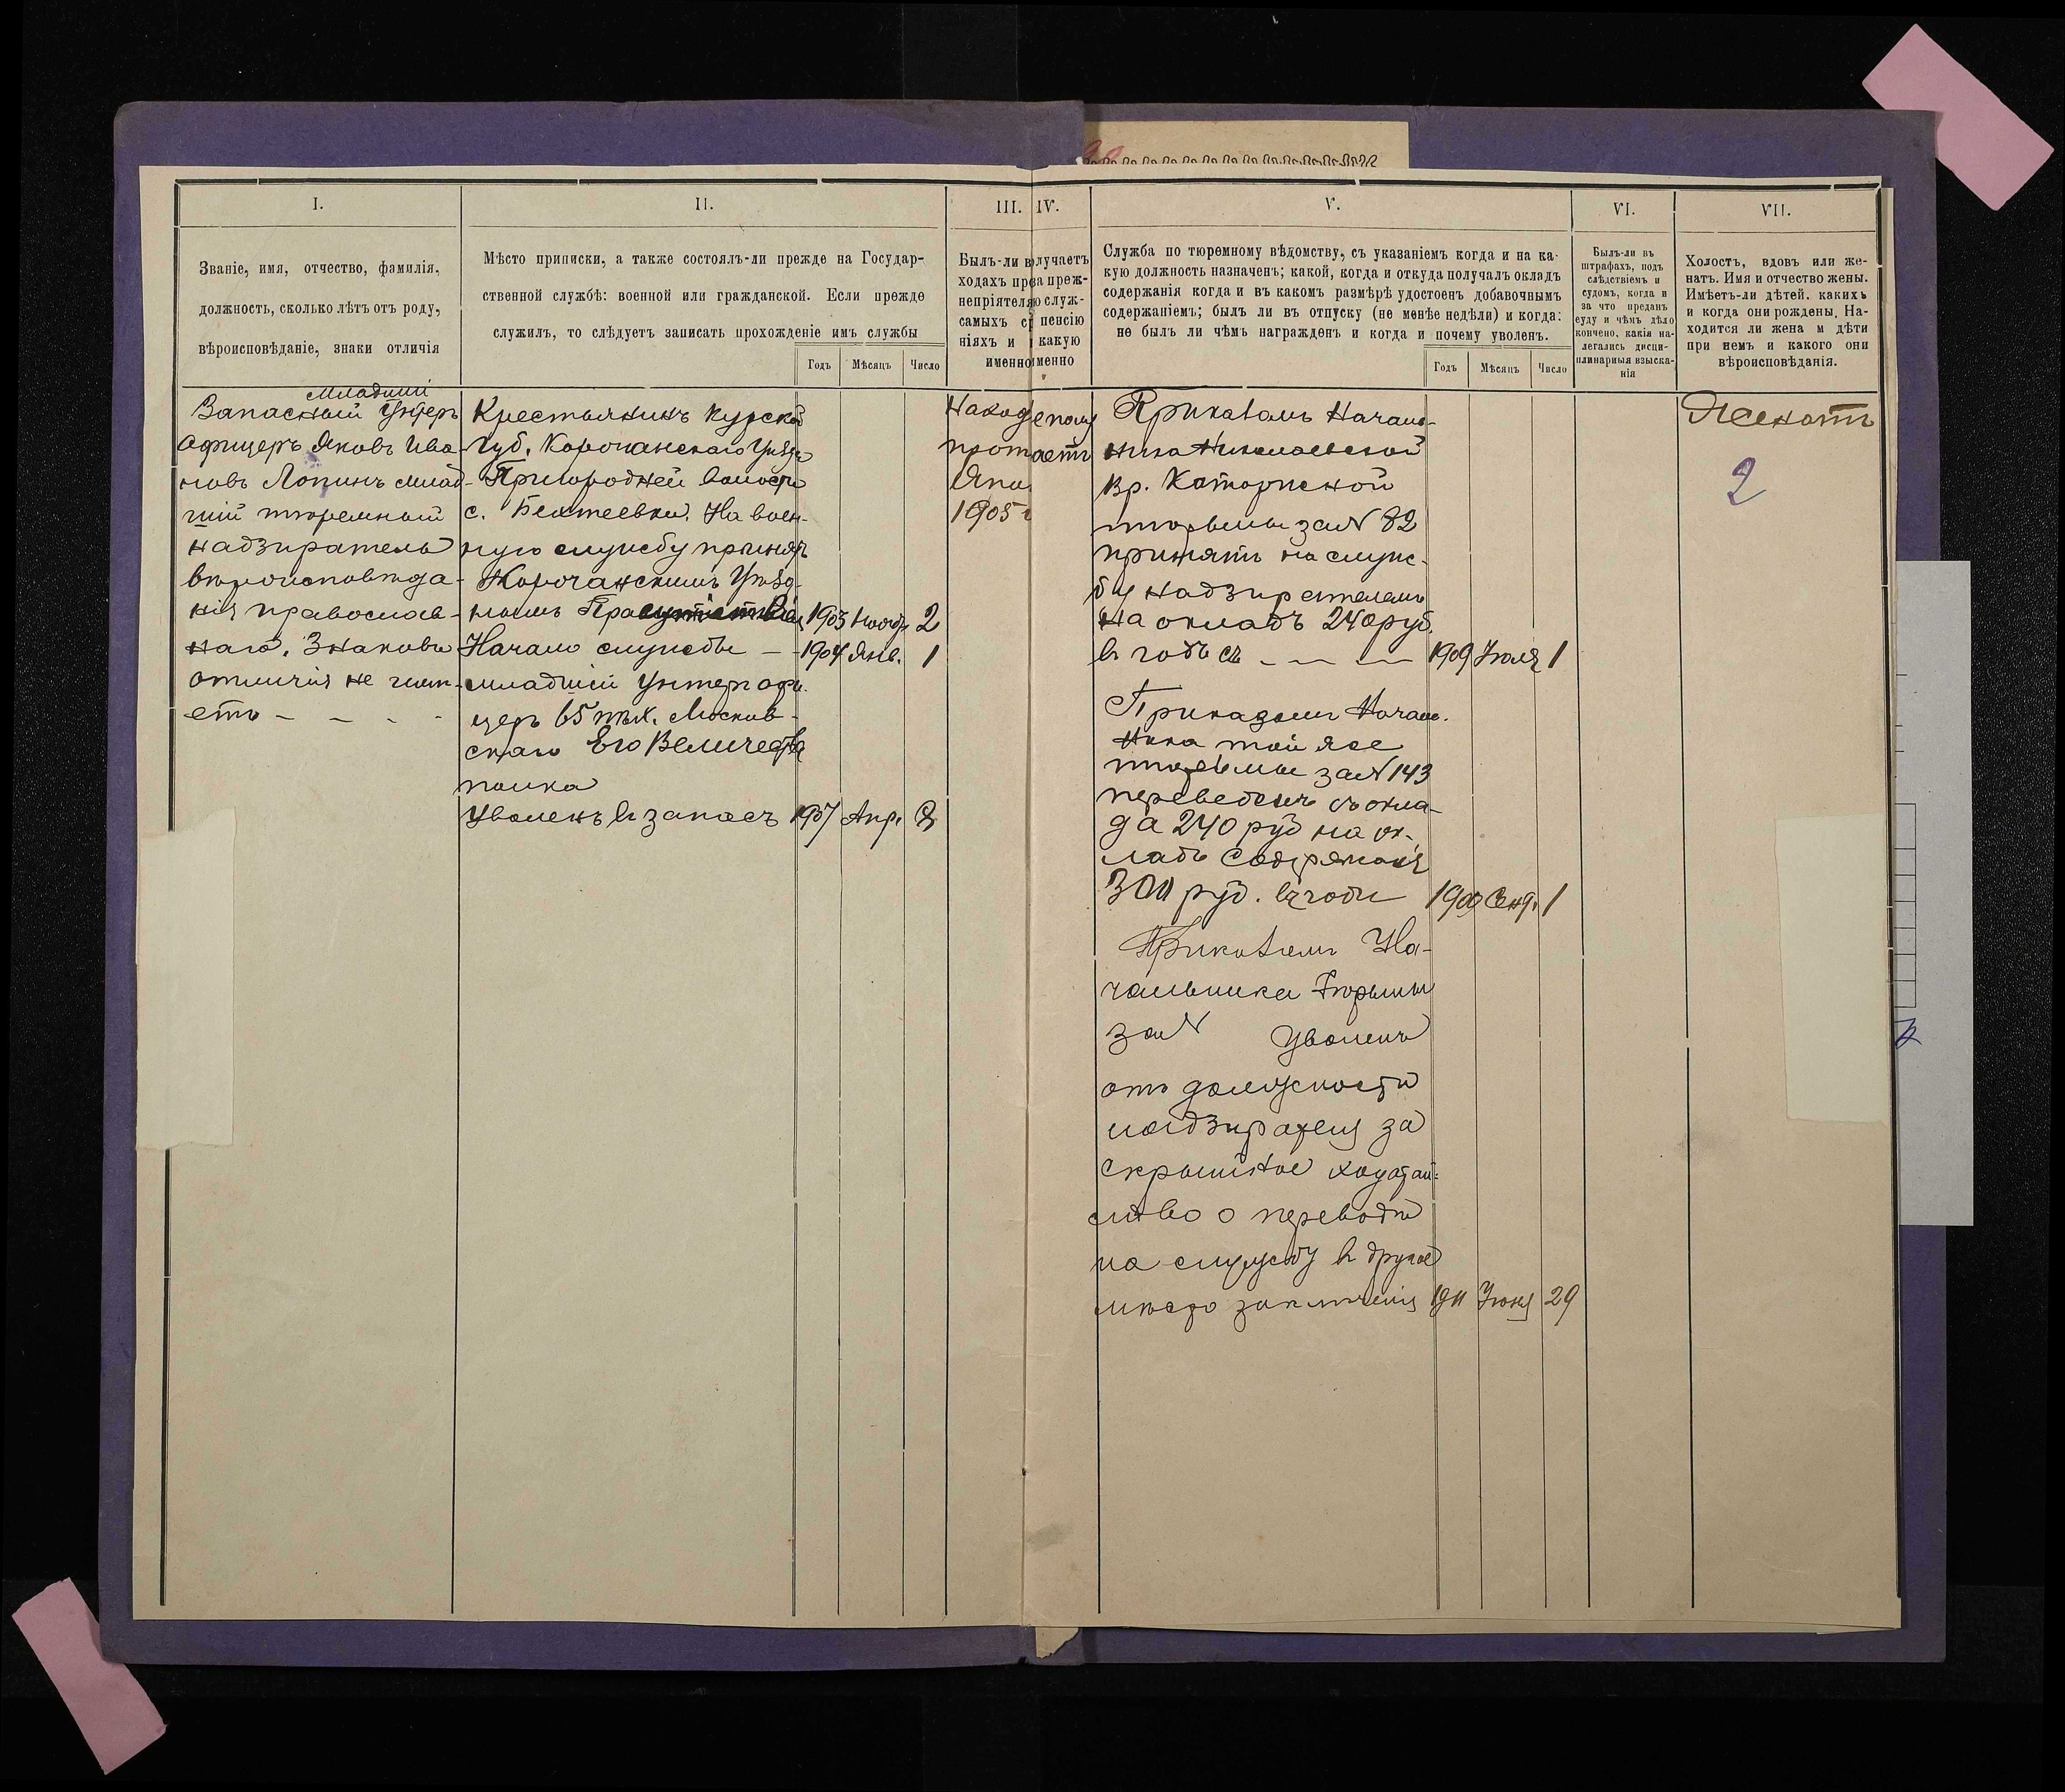 I.
Званіе, имя, отчество, фамилія,
должность, сколько лѣтъ отъ роду,
вѣроисповѣданіе, знаки отличія
Младшій
Запасный Унтеръ
Офицеръ Яковъ Ива-
новъ Лопинъ млад-
шій тюремный
надзиратель
вѣроисповѣда-
нія православ-
наго. Знаковъ
отличія не имѣ-
етъ - - - -
II.
Мѣсто приписки, а также состоялъ-ли прежде на Государ-
ственной службѣ: военной или гражданской. Если прежде
служилъ, то слѣдуетъ записать прохожденіе имъ службы
Годъ Мѣсяцъ Число
Крестьянинъ Курской
Губ. Корочанскаго Уѣзда
Пригородней волости
с. Бехтеевки. На воен-
ную службу принятъ
Корочанскимъ Уѣзд-
нымъ 1903 Нояб. 2
Начало службы — 1904 Янв. 1
младшій Унтеръ офи-
церъ 65 пѣх. Москов-
скаго Его Величества
полка
Уволенъ въ запасъ 1907 Апр.
III.
Былъ-ли в
ходахъ пр
непріятел
самыхъ с
ніяхъ и
именно
Наход
прот
Япо
1905 г
IV.
лучаетъ
а преж-
ю служ-
пенсію
какую
менно
аетъ
V.
Служба по тюремному вѣдомству, съ указаніемъ когда и на ка-
кую должность назначенъ; какой, когда и откуда получалъ окладъ
содержанія когда и въ какомъ размѣрѣ удостоенъ добавочнымъ
содержаніемъ; былъ ли въ отпуску (не менѣе недѣли) и когда:
не былъ ли чѣмъ награжденъ и когда и почему уволенъ.
Годъ Мѣсяцъ Число
Приказомъ Началь-
ника Николаевской
вр. Каторжной
тюрьмы за № 82
принятъ на служ-
бу надзирателемъ
на окладъ 240 руб.
въ годъ съ — — — 1909 Іюля 1
Приказомъ Началь-
ника той же
тюрьмы за № 143
переведенъ съ окла-
да 240 руб на ок-
ладъ содержанія
300 руб. въ годъ 1909 Сент. 1
Приказомъ На-
чальника Тюрьмы
за № уволенъ
отъ должности
надзирателя за
скрытное ходатай-
ство о переводѣ
на службу въ другое
мѣсто заключенія 1911 Іюня 29
VI.
Былъ-ли въ
штрафахъ, подъ
слѣдствіемъ и
судомъ, когда и
за что преданъ
суду и чѣмъ дѣло
кончено, какія на-
легались дисци-
плинарныя взыска-
нія
VII.
Холостъ, вдовъ или же-
натъ. Имя и отчество жены.
Имѣетъ-ли дѣтей. какихъ
и когда они рождены. На-
ходится ли жена и дѣти
при немъ и какого они
вѣроисповѣданія.
Женатъ
2